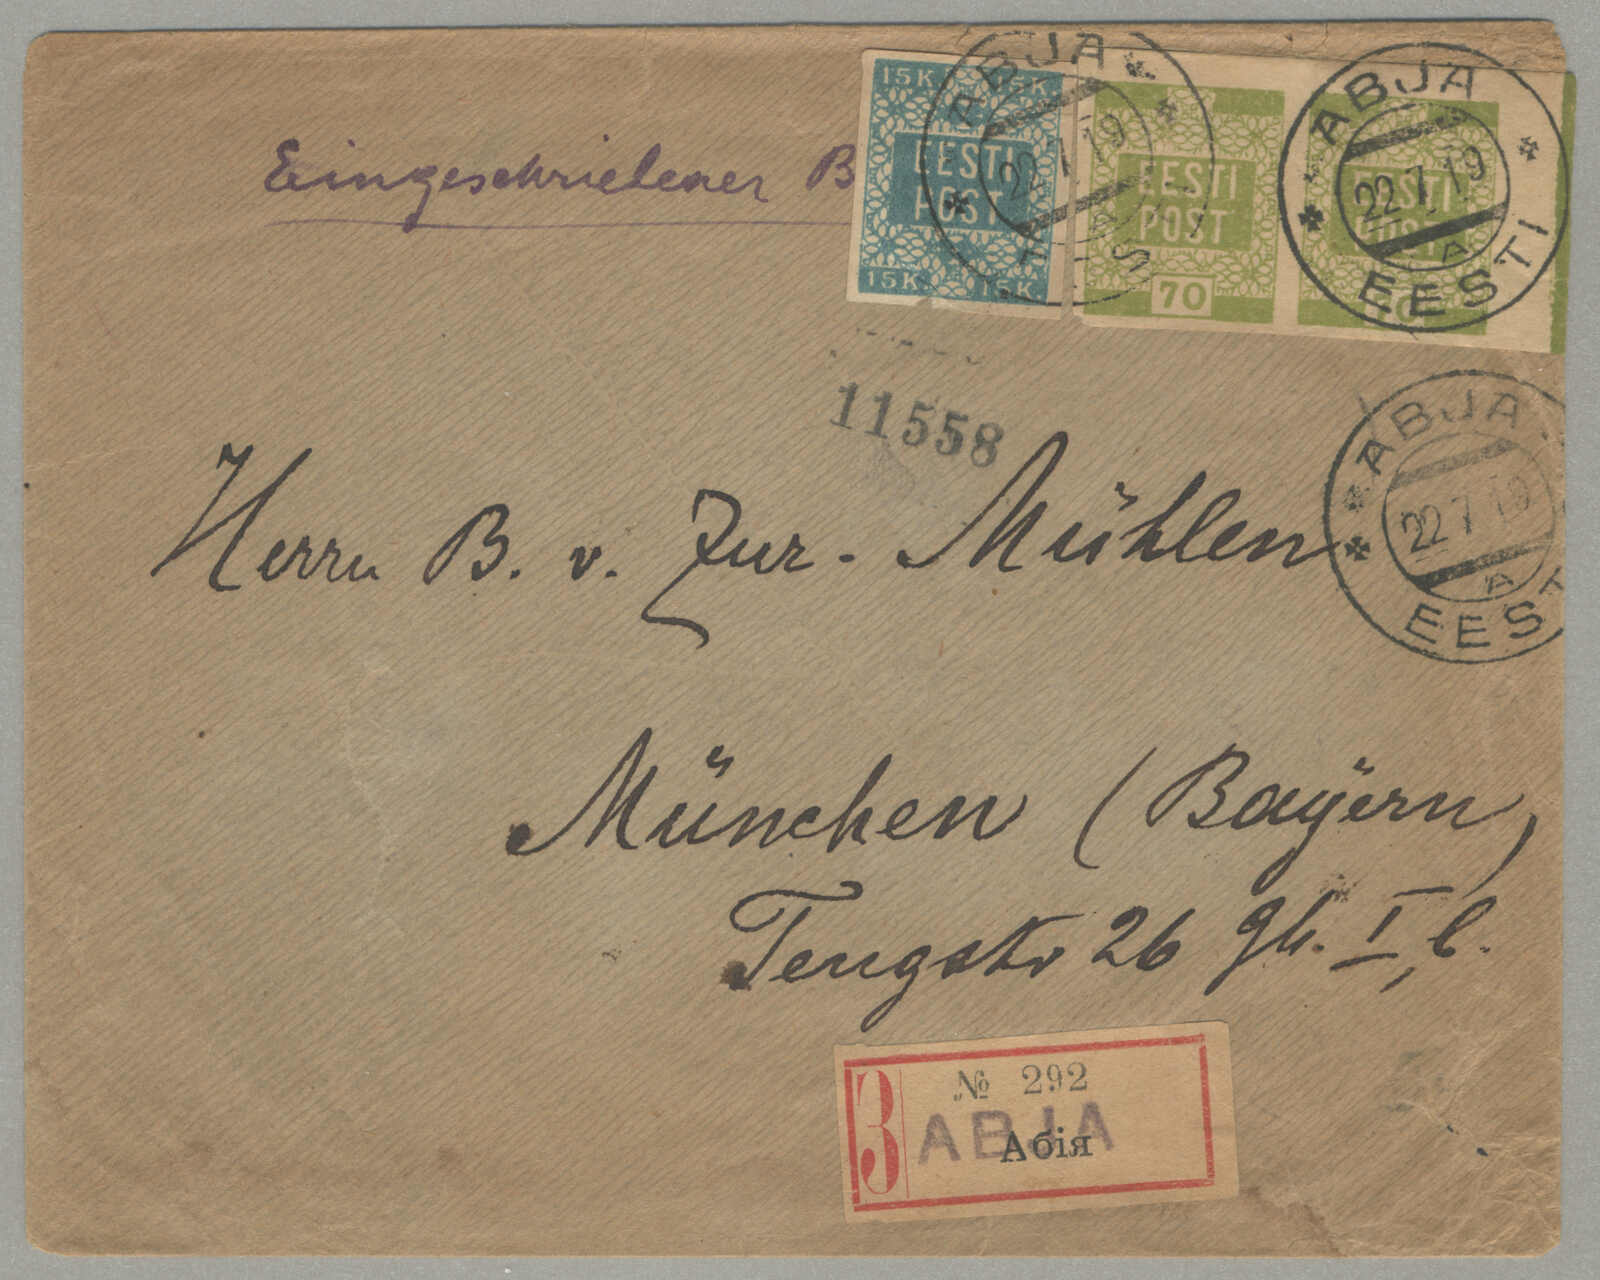 Eingeschriebener B
15K. 15K.
EESTI
POST
15K. 15K.
EESTI
POST
70
EESTI
POST
70
ABJA
22 7 19
A
EESTI
ABJA
22 7 19
A
EESTI
ABJA
22 7 19
A
EEST
11558
Herrn B. v. Zur-Mühlen
München (Bayern)
Tengstr 26 Gh. I, l.
3
№ 292
ABJA
Абія